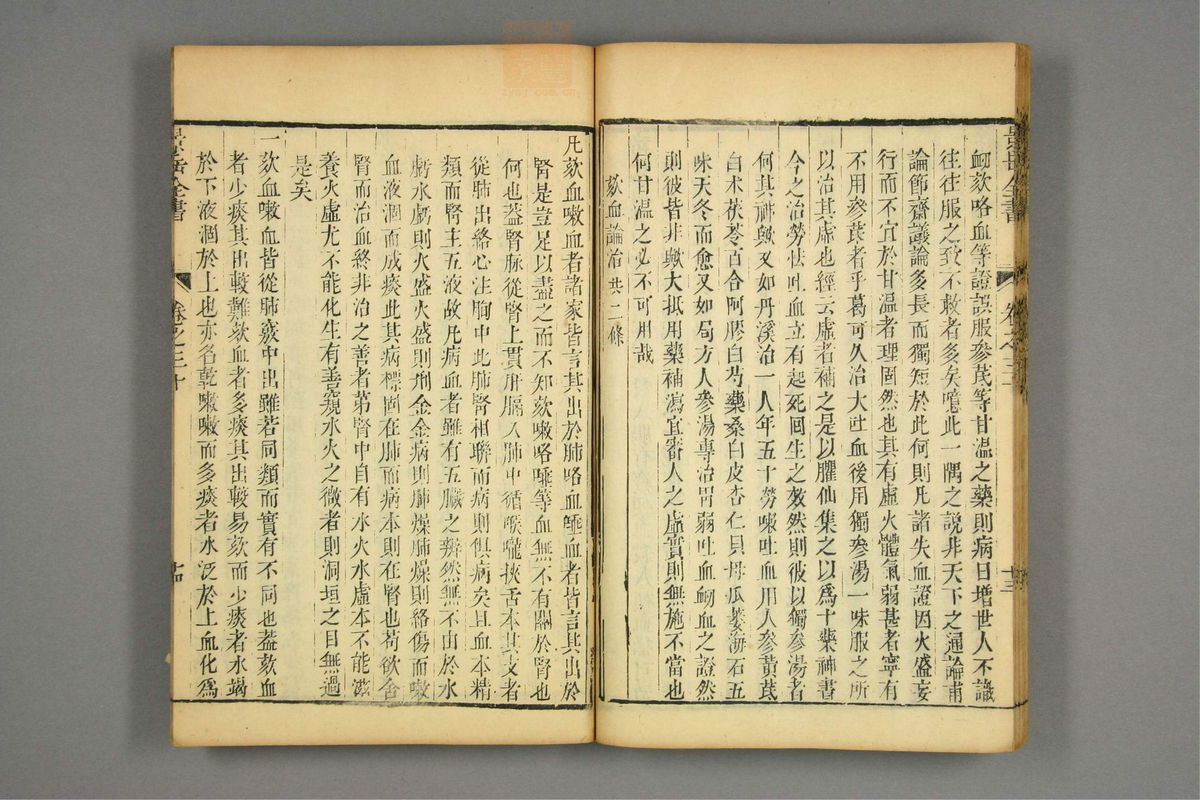 衂欬咯血等證誤服參芪等甘温之藥則病日增世人不識
往往服之致不救者多矣噫此一隅之説非天下之通論甫
論節齋議論多長而獨短於此何則凡諸失血證因火盛妄
行而不宜於甘温者理固然也其有虛火體氣弱甚者寧有
不用參芪者乎葛可久治大吐血後用獨參湯一味服之所
以治其虛也經云虛者補之是以臞仙集之以爲十藥神書
今之治勞怯吐血立有起死回生之效然則彼以獨參湯者
何其謬歟又如丹溪治一人年五十勞嗽吐血用人參黄芪
白朮茯苓百合阿膠白芍藥桑白皮杏仁貝母瓜蔞海石五
味天冬而愈又如局方人參湯專治胃弱吐血衂血之證然
則彼皆非歟大抵用藥補瀉宜審人之虛實則無施不當也
何甘温之必不可用哉
欬血論治 共二條
凡欬血嗽血者諸家皆言其出於肺咯血唾血者皆言其出於
腎是豈足以盡之而不知欬嗽咯唾等血無不有關於腎也
何也葢腎脉從腎上貫肝膈入肺中循喉嚨挾舌本其支者
從肺出絡心注胸中此肺腎相聯而病則俱病矣且血本精
類而腎主五液故凡病血者雖有五臟之辨然無不由於水
虧水虧則火盛火盛則刑金金病則肺燥肺燥則絡傷而嗽
血液涸而成痰此其病標固在肺而病本則在腎也苟欲舍
腎而治血終非治之善者第腎中自有水火水虛本不能滋
養火虛尤不能化生有善窺水火之微者則洞垣之目無過
是矣
一欬血嗽血皆從肺竅中出雖若同類而實有不同也葢欬血
者少痰其出較難嗽血者多痰其出較易欬而少痰者水竭
於下液涸於上也亦名乾嗽嗽而多痰者水泛於上血化爲
景岳全書
卷之三十
廿四